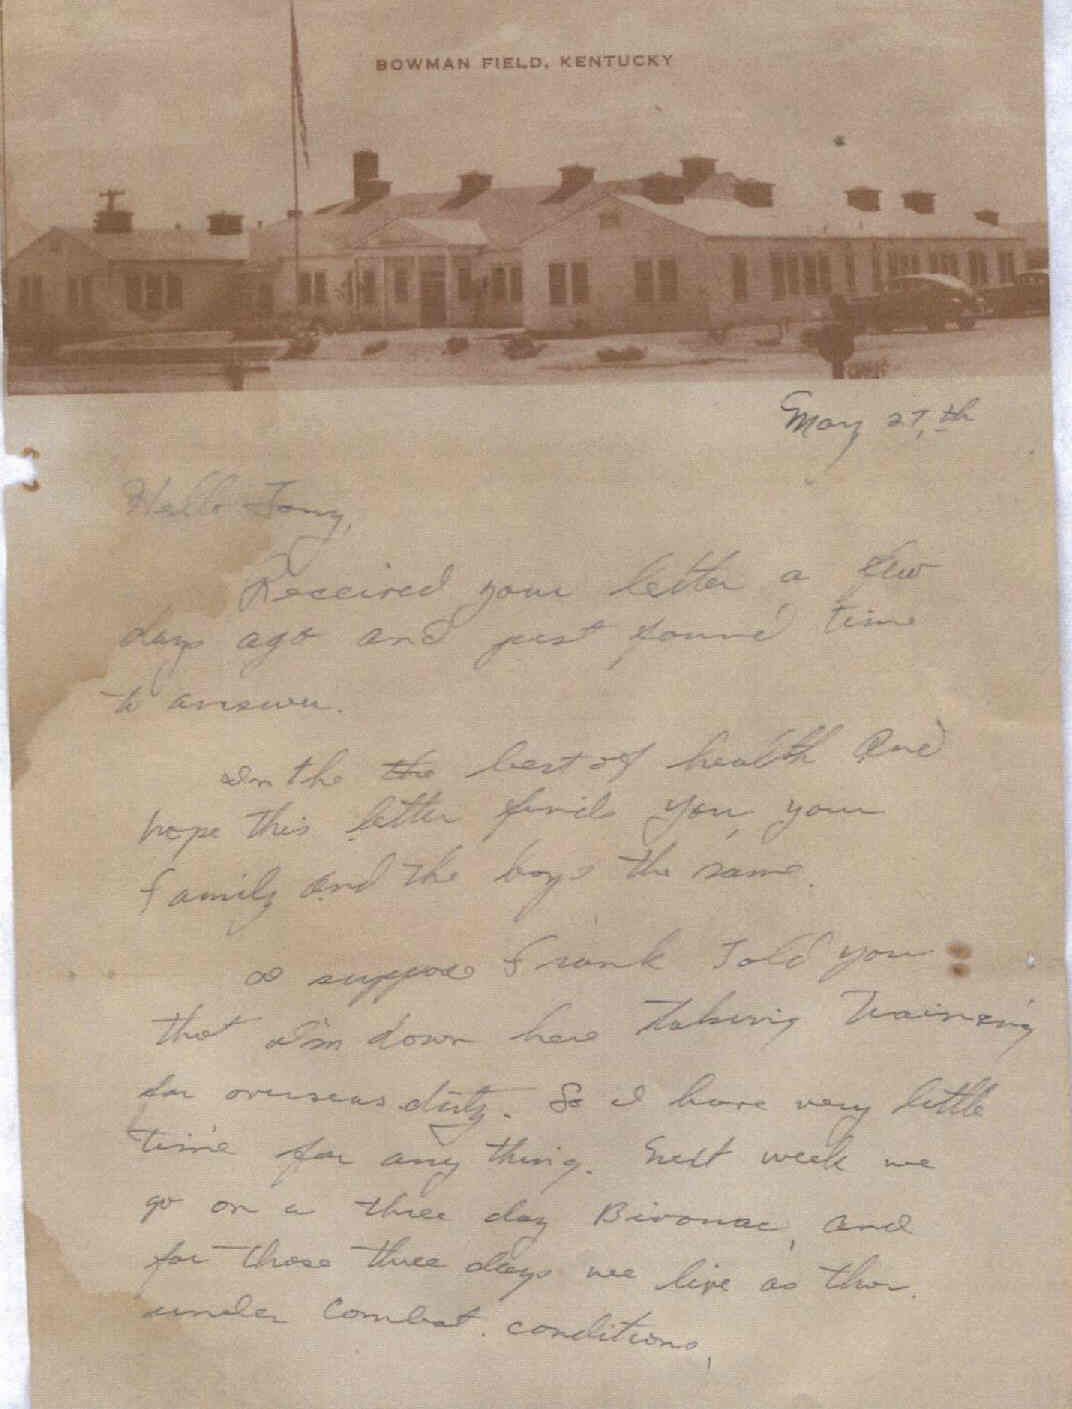 BOWMAN FIELD, KENTUCKY
May 27,th
Hello Tony,
Received your letter a few
days ago and just found time
to answer.
In the the best of health and
hope this letter finds you, your
family and the boys the same.
I suppose Frank Told you
that I'm down here Taking Training
for overseas duty. So I have very little
time for any thing. Next week we
go on a three day Bivouac, and
for those three days we live as tho.
under combat conditions,